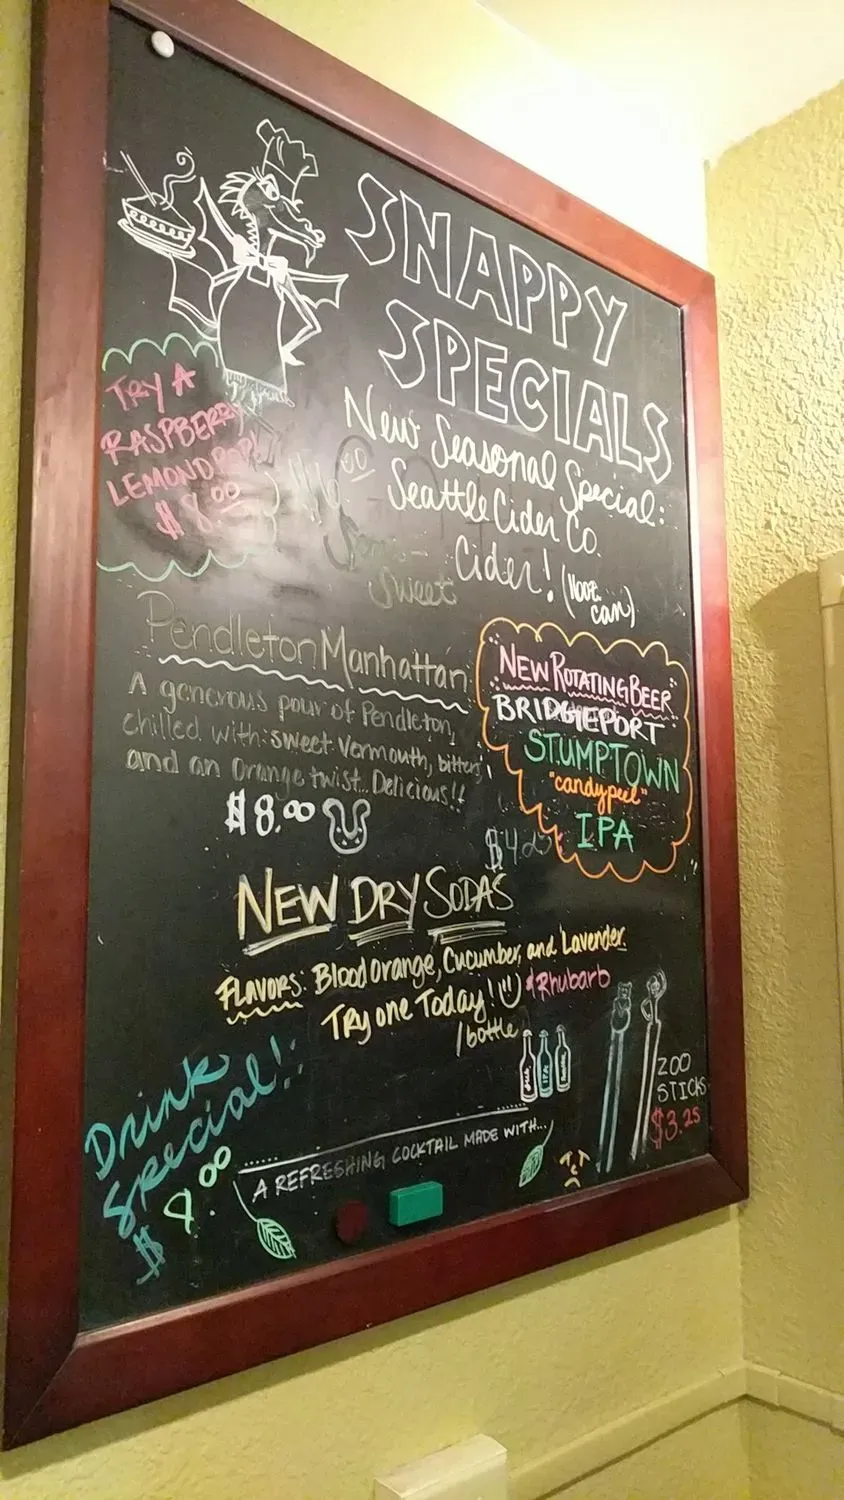 SNAPPY
SPECIALS
TRY A
RASPBERRY
LEMONDROP!
$8.00
New Seasonal Special:
Seattle Cider Co.
Cider!
can)
$6.00
Semi-
Sweet
Pendleton Manhattan
A generous pour of Pendleton,
chilled with sweet Vermouth, bitters,
and an Orange twist... Delicious!!
$8.00
NEW ROTATING BEER
BRIDGEPORT
STUMPTOWN
"candy peel"
IPA
NEW DRY SODAS
FLAVORS: Blood orange, Cucumber, and Lavender
& Rhubarb
Try one Today!
/bottle
IPA
ZOO
STICKS
$3.25
Drink
Special!:
A REFRESHING COCKTAIL MADE WITH...